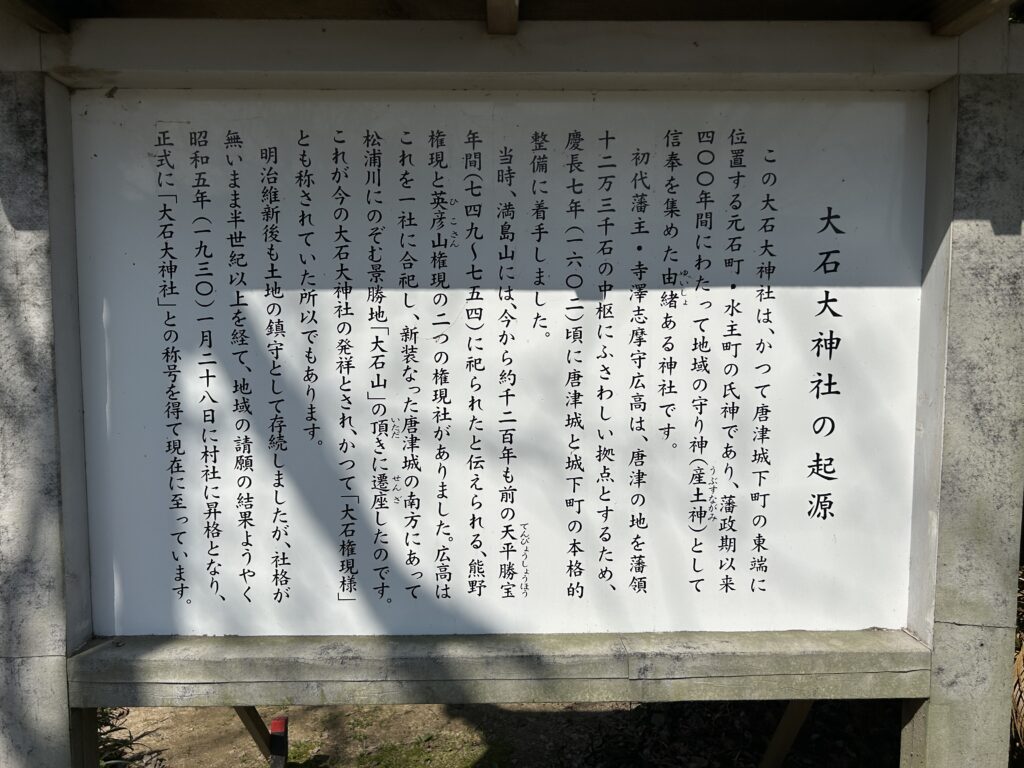 大石大神社の起源
この大石大神社は、かつて唐津城下町の東端に
位置する元石町・水主町の氏神であり、藩政期以来
四〇〇年間にわたって地域の守り神（産土神）として
うぶすながみ
信奉を集めた由緒ある神社です。
ゆいしょ
初代藩主・寺澤志摩守広高は、唐津の地を藩領
十二万三千石の中枢にふさわしい拠点とするため、
慶長七年（一六〇二）頃に唐津城と城下町の本格的
整備に着手しました。
当時、満島山には、今から約千二百年も前の天平勝宝
てんぴょうしょうほう
年間（七四九〜七五四）に祀られたと伝えられる、熊野
権現と英彦山権現の二つの権現社がありました。広高は
ひこさん
これを一社に合祀し、新装なった唐津城の南方にあって
松浦川にのぞむ景勝地「大石山」の頂きに遷座したのです。
いただ
せんざ
これが今の大石大神社の発祥とされ、かつて「大石権現様」
とも称されていた所以でもあります。
明治維新後も土地の鎮守として存続しましたが、社格が
無いまま半世紀以上を経て、地域の請願の結果ようやく
昭和五年（一九三〇）一月二十八日に村社に昇格となり、
正式に「大石大神社」との称号を得て現在に至っています。